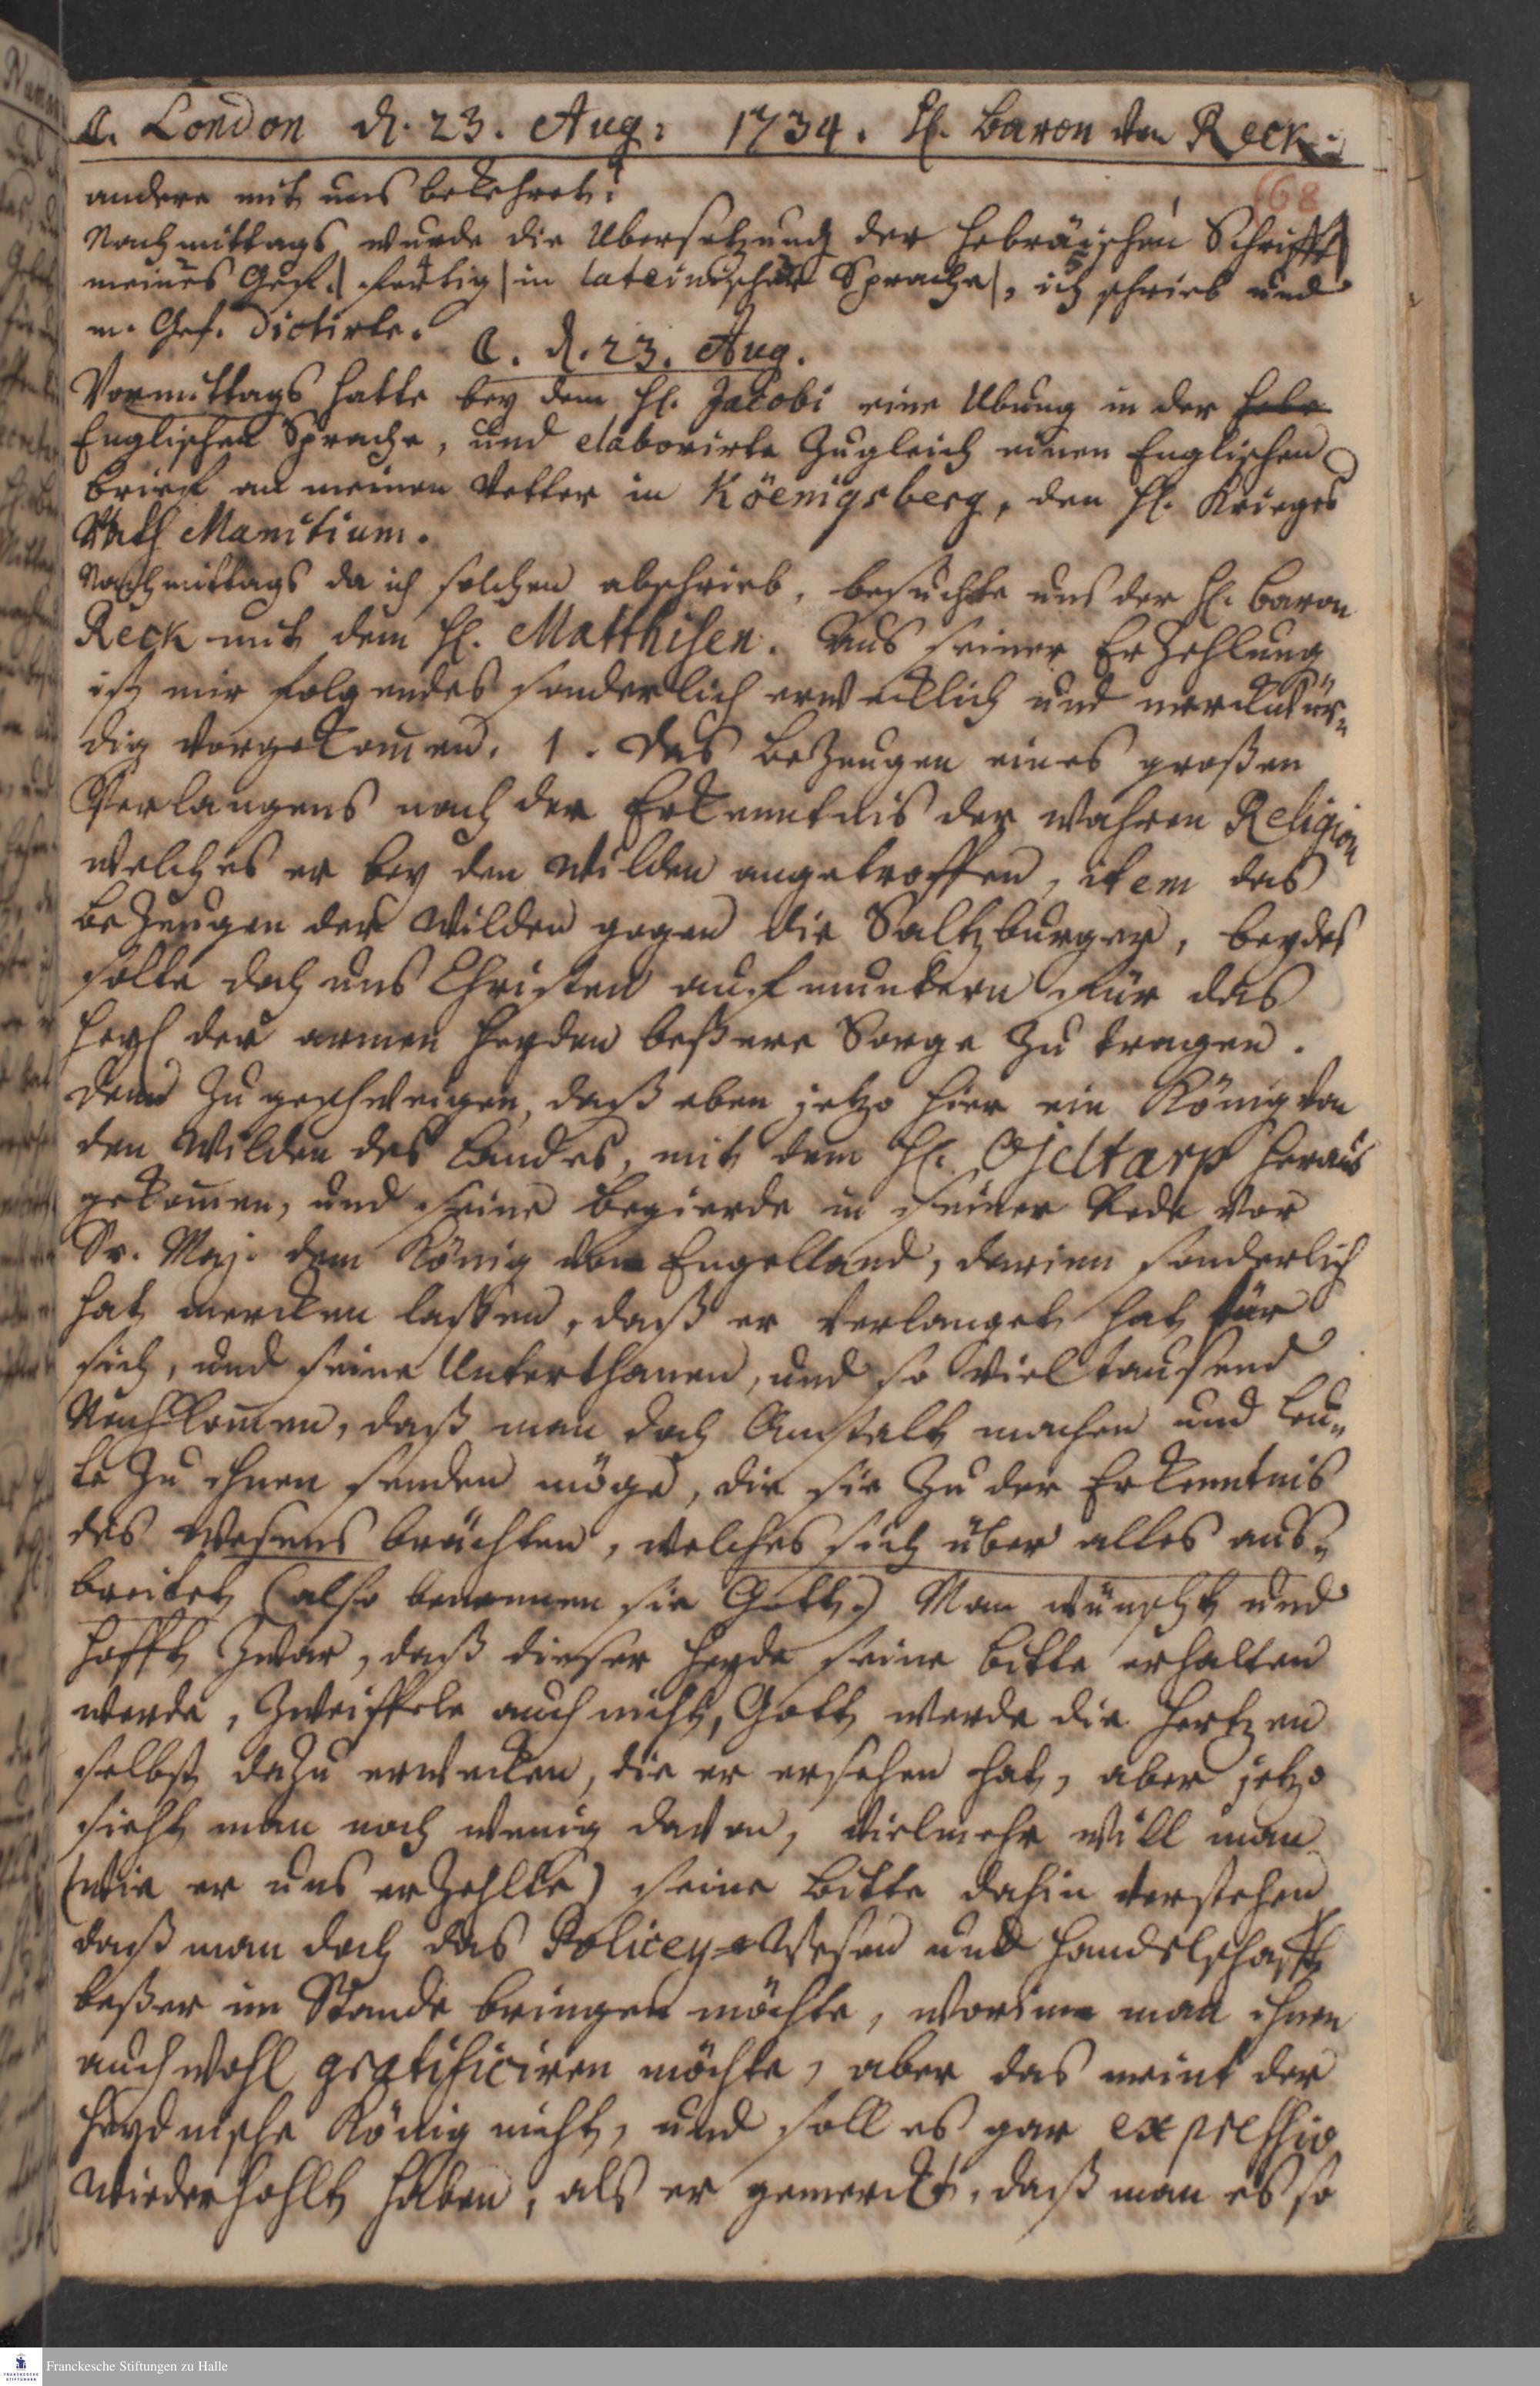 C. London d. 23. Aug: 1734. H. Baron von Reck.
68
andere mit uns bekehret.
Nachmittags wurde die Ubersetzung der Hebräischen Schrifft
meines Gef. fertig in lateinischer Sprache, ich schrieb und
m. Gef. dictirte.
C. d. 23. Aug.
Vormittags hatte bey dem H. Jacobi eine Ubung in der Hebr
Englischen Sprache, und elaborirte zugleich einen Englischen
brief an meinen Vetter in Köenigsberg, den H. Krieges
Rath Manitium.
Nachmittags da ich solchen abschrieb, besuchte uns der H. Baron
Reck mit dem H. Matthisen. Aus seiner Erzehlung
ist mir folgendes sonderlich erwecklich und merckwür-
dig vorgekomen. 1. Das bezeugen eines großen
Verlangens nach der Erkenntnis der wahren Religion
welches er bey den Wilden angetroffen, item das
bezeugen der Wilden gegen die Saltzburger, beydes
solte doch uns Christen aufmuntern für das
Heyl der armen Heyden beßere Sorge zu tragen.
Denn zu geschweigen, daß eben jetzo hier ein König von
den Wilden des Landes, mit dem H. Ojeltarp heraus
gekomen, und seine begierde in seiner Rede vor
Sr. Maj. dem König von Engelland, darinn sonderlich
hat mercken lassen, daß er verlanget hat für
sich, und seine Unterthanen, und so viel tausend
Nachkomen, daß man doch Anstalt machen und Leu-
te zu ihnen senden möge, die sie zu der Erkenntnis
des Wesens brächten, welches sich über alles aus-
breitet (also benennen sie Gott.) Man wünscht und
hofft zwar, daß dieser Heyde seine bitte erhalten
werde, zweiffele auch nicht, Gott werde die Hertzen
selbst dazu erwecken, die er ersehen hat, aber jetzo
sieht man noch wenig davon, vielmehr will man
(wie er uns erzehlte) seine bitte dahin verstehen
daß man doch das Policey-Wesen und Handelschafft
beßer im Stande bringen möchte, worinn man ihnen
auch wohl gratificiren möchte, aber das meint der
Heydnische König nicht, und soll es gar expressio
wiederhohlt haben, als er gemerckt, daß man es so
Franckesche Stiftungen zu Halle